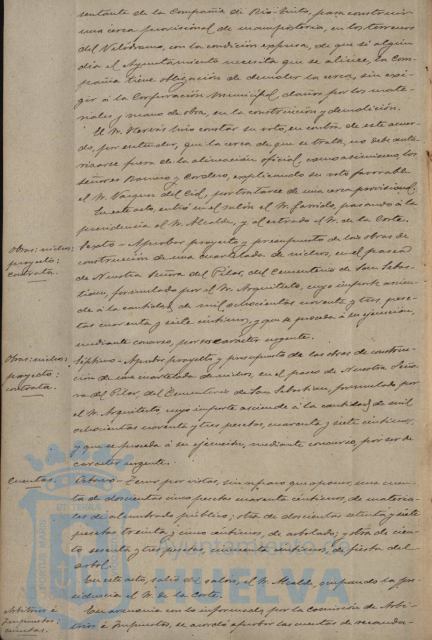 sentante de la Compañía de Rio-Tinto, para construir
una cerca provisional de mampostería, en los terrenos
del Velódromo, con la condición expresa, de que si algún
día el Ayuntamiento necesita que se alinee, la Com-
pañía tiene obligación de demoler la cerca, sin exi-
gir á la Corporación Municipal daños por los mate-
riales y mano de obra, en la construcción y demolición.
El Sr. hizo constar su voto, en contra de este acuer-
do, por entender, que la cerca de que se trata, no debe auto-
rizarse fuera de la alineación oficial, como asimismo los
señores Barroso y Cordero, explicando su voto favorable
el Sr. Vazquez del Cid, por tratarse de una cerca provisional.
En este acto, entró en el salón el Sr. Garrido, pasando á la
presidencia el Sr. Alcalde, y al estrado el Sr. de la Corte.
Obras: nichos;
proyecto:
contrata.
Sexto - Aprobar proyecto y presupuesto de las obras de
construcción de una cuartelada de nichos, en el paseo
de Nuestra Señora del Pilar, del Cementerio de San Sebas-
tian, formulado por el Sr. Arquitecto, cuyo importe ascien-
de á la cantidad de mil ochocientas noventa y tres, pese-
tas cuarenta y siete céntimos, y que se proceda á su ejecución,
mediante concurso, por ser carácter urgente.
Obras: nichos;
proyecto:
contrata.
Séptimo - Aprobar proyecto y presupuesto de las obras de construc-
ción de una cuartelada de nichos, en el paseo de Nuestra Seño-
ra del Pilar, del Cementerio de San Sebastian, formulado por
el Sr. Arquitecto, cuyo importe asciende á la cantidad de mil
ochocientas noventa y tres pesetas, cuarenta y siete céntimos,
y que se proceda á su ejecución, mediante concurso, por ser de
carácter urgente.
Cuentas.
Octavo - Tener por vistas, sin reparo que oponer, una cuen-
ta de doscientas cinco pesetas cuarenta céntimos, de materia-
les de alumbrado público; otra de doscientas setenta y siete
pesetas treinta y cinco céntimos, de arbolado; y otra de cien-
to sesenta y tres pesetas, céntimos, de fiesta del
arbol.
En este acto, salió del salón, el Sr. Alcalde, ocupando la pre-
sidencia el Sr. de la Corte.
Arbitrios é
Impuestos:
cuentas.
En armonía con lo informado, por la Comisión de Arbi-
trios é Impuestos, se acordó aprobar las cuentas de recauda-
PORTUS MARIS ET TERRÆ
Ayuntamiento de
HUELVA